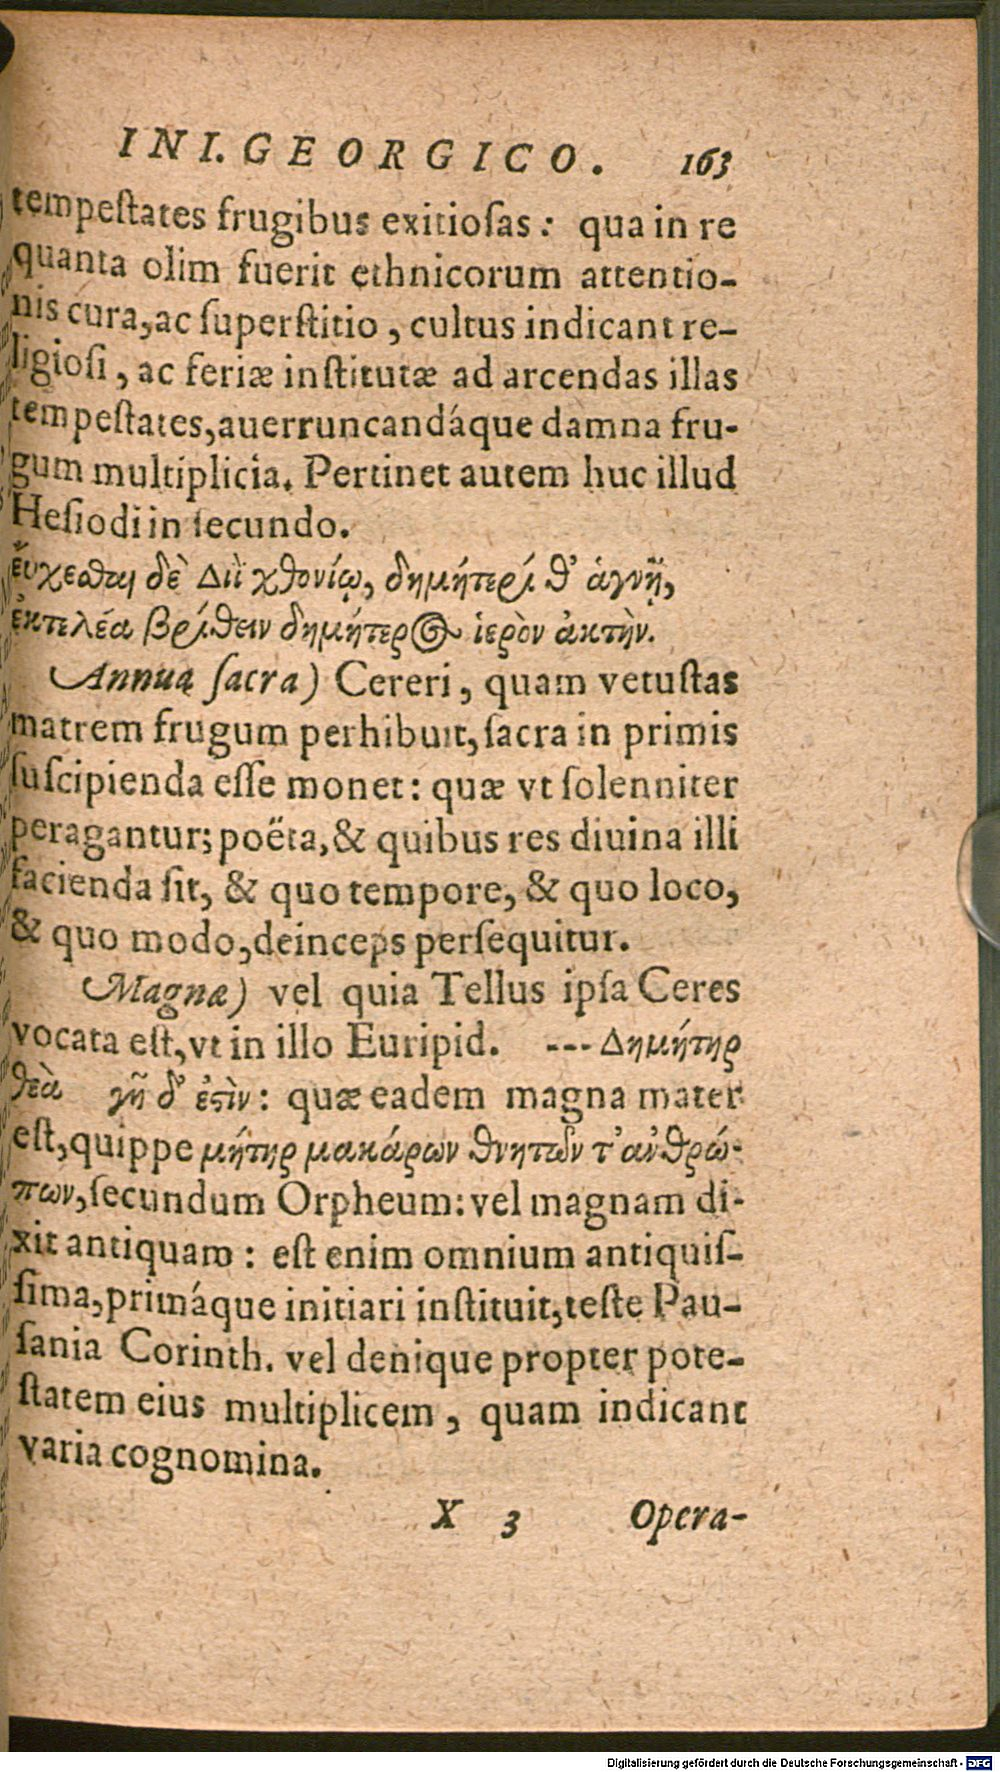 IN I. GEORGICO. 163
tempeſtates frugibus exitioſas: qua in re
quanta olim fuerit ethnicorum attentio-
nis cura, ac ſuperſtitio, cultus indicant re-
ligioſi, ac feriæ inſtitutæ ad arcendas illas
tempeſtates, auerruncandáque damna fru-
gum multiplicia. Pertinet autem huc illud
Heſiodi in ſecundo.
εὔχεσθαι δὲ Διῒ χθονίῳ, δημήτερι θ᾽ ἁγνῇ,
ἐκτελέα βρίθειν δημήτερος ἱερὸν ἀκτὴν.
Annua ſacra) Cereri, quam vetuſtas
matrem frugum perhibuit, ſacra in primis
ſuſcipienda eſſe monet: quæ vt ſolenniter
peragantur; poëta, & quibus res diuina illi
facienda ſit, & quo tempore, & quo loco,
& quo modo, deinceps perſequitur.
Magnæ) vel quia Tellus ipſa Ceres
vocata eſt, vt in illo Euripid. --- Δημήτηρ
θεὰ γῆ δ᾽ ἐϛὶν: quæ eadem magna mater
eſt, quippe μήτηρ μακάρων θνητῶν τ᾽ ἀνθρώ-
πων, ſecundum Orpheum: vel magnam di-
xit antiquam: eſt enim omnium antiquiſ-
ſima, primáque initiari inſtituit, teſte Pau-
ſania Corinth. vel denique propter pote-
ſtatem eius multiplicem, quam indicant
varia cognomina.
X 3 Opera-
Digitalisierung gefördert durch die Deutsche Forschungsgemeinschaft - DFG